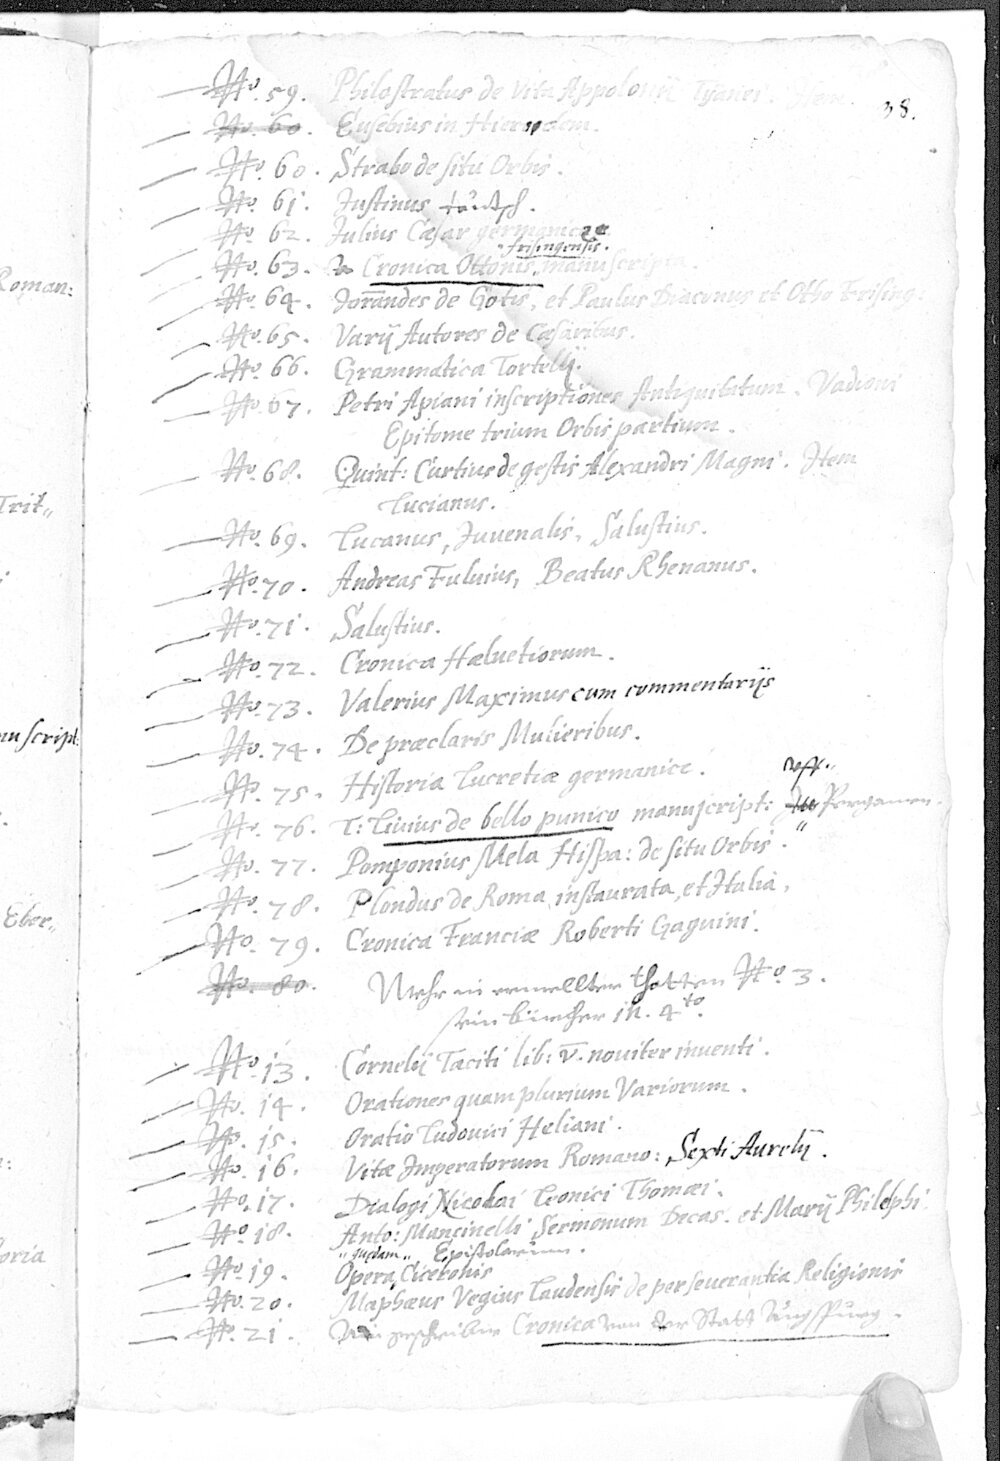 38.
No. 59. Philostratus de Vita Appolonij Tÿanei. Item.
No. 60. Eusebius in Hieroclem.
No. 60. Strabo de situ Orbis.
No. 61. Justinus teütsch.
No. 62. Julius Cæsar germanice
frisingensis.
No. 63. Cronica Ottonis, manuscripta.
No. 64. Jornandes de Gotis, et Paulus Diaconus et Otho Frising:
No. 65. Varij Autores de Cæsaribus.
No. 66. Grammatica Tortelij.
No. 67. Petri Apiani inscriptiones Antiquitatum. Vadiani
Epitome trium Orbis partium.
No. 68. Quint: Curtius de gestis Alexandri Magni. Item
Lucianus.
No. 69. Lucanus, Juvenalis, Salustius.
No. 70. Andreas Fuluius, Beatus Rhenanus.
No. 71. Salustius.
No. 72. Cronica Hæluetiorum.
No. 73. Valerius Maximus cum commentarijs
No. 74. De præclaris Mulieribus.
No. 75. Historia Lucretiæ germanice.
auff.
No. 76. T: Liuius de bello punico manuscript: Pergamen.
No. 77. Pomponius Mela Hispa: de situ Orbis.
No. 78. Plondus de Roma instaurata, et Italia,
No. 79. Cronica Franciæ Roberti Gaguini.
No. 80. Mehr in No. 3.
sein bücher in. 4to.
No. 13. Cornelij Taciti lib: V. noviter inventi.
No. 14. Orationes quamplurium Variorum.
No. 15. Oratio Ludouici Heliani.
No. 16. Vitæ Imperatorum Romano: Sexti Aurelij.
No. 17. Dialogi Nicolai Leonici Thomæi.
No. 18. Anto: Mancinelli Sermonum Decas. et Marij Philelphi
quædam Epistolarium.
No. 19. Opera Ciceronis
No. 20. Maphæus Vegius Laudensis de perseverantia Religionis
No. 21. Ain geschribne Cronica von der Statt Augspurg.
Roman:
Trit
nuscript:
Eber
oria